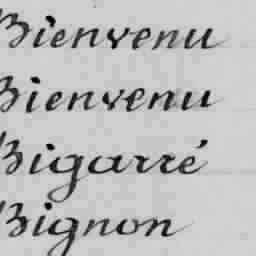 Bienvenu
Bienvenu
Bigarré
Bignon